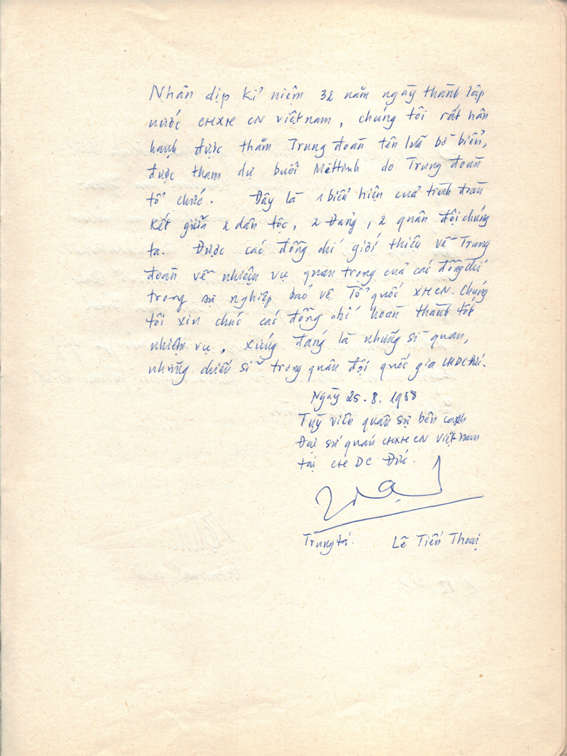 Nhân dịp kỉ niệm 32 năm ngày thành lập
nước CHXHCN Việt nam, chúng tôi rất hân
hạnh được thăm Trung đoàn tên lửa bờ biển,
được tham dự buổi Mêttinh do Trung đoàn
tổ chức. Đây là 1 biểu hiện của tình đoàn
kết giữa 2 dân tộc, 2 Đảng, 2 quân đội chúng
ta. Được các đồng chí giới thiệu về Trung
đoàn về nhiệm vụ quan trọng của các đồng chí
trong sự nghiệp bảo vệ Tổ quốc XHCN. Chúng
tôi xin chúc các đồng chí hoàn thành tốt
nhiệm vụ, xứng đáng là những sĩ quan,
những chiến sĩ trong quân đội quốc gia CHDC Đức.
Ngày 25.8.1988
Tuỳ viên quân sự bên cạnh
Đại sứ quán CHXHCN Việt nam
tại CHDC Đức.
Trung tá. Lê Tiến Thoại